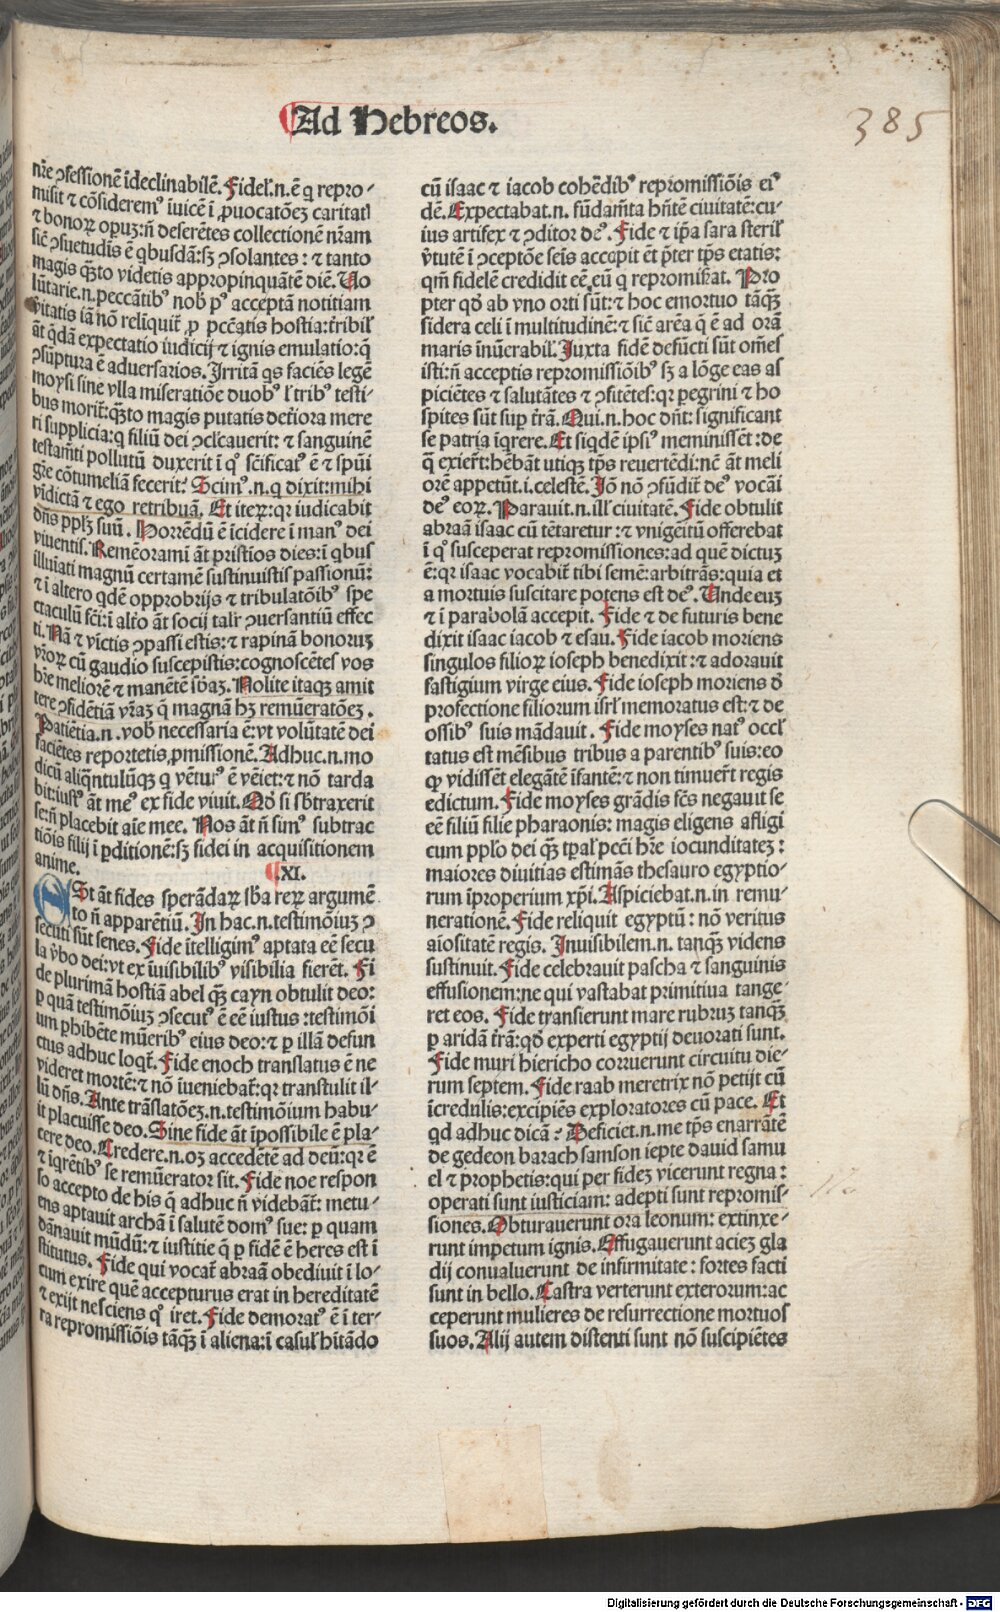 Ad Hebreos.
385
nr̄e ꝯfessionē īdeclinabilē. Fidel̕.n.ē q repro⸗
misit ⁊ cōsideremꝰ iuicē ī ꝓuocatōeꝫ caritatꝭ
⁊ bonoꝝ opuꝫ:n̄ deserētes collectionē nr̄am
sic̄ ꝯsuetudīs ē qbusdā:sꝫ ꝯsolantes: ⁊ tanto
magis qꝫto videtis appropinquātē diē. Uo
lūtarie.n.peccātibꝰ nob̕ pꝰ acceptā notitiam
v̄itatis iā nō relīquit̄ ꝓ pcc̄atis hostia:tr̄ibil̕
āt qd̄ā expectatio iudicij ⁊ ignis emulatio:q̄
ꝯsūptura ē aduersarios. Irritā qs faciēs legē
moysi sine vlla miseratiōe duobꝰ l̕ tribꝰ testi⸗
bus morit̄:qꝫto magis putatis det̄iora mere
ri supplicia:q filiū dei ꝯcl̕cauerit: ⁊ sanguinē
testam̄ti pollutū duxerit ī qꝰ sc̄ificatꝰ ē ⁊ sp̄ui
gr̄e cōtumeliā fecerit? Scimꝰ.n.q dixit:mihi
vīdictā ⁊ ego retribuā. Et iteꝝ:qr iudicabit
dn̄s pplꝫ suū. Horrēdū ē īcidere ī manꝰ dei
viuentis. Remēoramī āt pristīos dies:ī qbus
illuīati magnū certamē sustinuistis passionū:
⁊ ī altero qdē opprobrijs ⁊ tribulatōibꝰ spe
ctaculū sc̄i:ī alt̄o āt socij tal̕r ꝯuersantiū effec
ti. Nā ⁊ vīctis ꝯpassi estis: ⁊ rapinā bonoruꝫ
vr̄oꝝ cū gaudio suscepistis:cognoscētes vos
hr̄e meliorē ⁊ manētē sb̄aꝫ. Nolite itaqꝫ amit
tere ꝯfidētiā vr̄aꝫ q̄ magnā hꝫ remūeratōeꝫ.
Patiētia.n.vob̕ necessaria ē:vt volūtatē dei
faciētes reportetis ꝓmissionē. Adhuc.n.mo
dicū aliqn̄tulūqꝫ q vētur̕ꝰ ē vēiet:⁊ nō tarda
bit:iustꝰ āt meꝰ ex fide viuit. Qd̕ si sb̄traxerit
se:n̄ placebit aīe mee. Nos āt n̄ simꝰ subtrac
tiōis filij ī ꝑditionē:sꝫ fidei in acquisitionem
anime.
.XI.
Est āt fides sperādaꝝ sb̄a reꝝ argumē
to n̄ apparētiū. In hac.n.testimōiuꝫ ꝯ
secuti sūt senes. Fide ītelligimꝰ aptata eē secu
la v̄bo dei:vt ex īuisibilibꝰ visibilia fierēt. Fi
de plurimā hostiā abel qꝫ cayn obtulit deo:
ꝑ quā testimōiuꝫ ꝯsecutꝰ ē eē iustus :testimōi
um ꝑhibēte mūeribꝰ eius deo:⁊ ꝑ illā defun
ctus adhuc loqt̄. Fide enoch translatus ē ne
videret mortē:⁊ nō īueniebat̄:qr transtulit il⸗
lū dn̄s. Ante trāslatōeꝫ.n.testimōium habu⸗
it placuisse deo. Sine fide āt īpossibile ē pla⸗
cere deo. Credere.n.oꝫ accedētē ad deū:qr ē
⁊ īqrētibꝰ se remūerator sit. Fide noe respon
so accepto de his q̄ adhuc n̄ videbāt̄: metu⸗
ens aptauit archā ī salutē domꝰ sue: ꝑ quam
dānauit mūdū:⁊ iustitie q̄ ꝑ fidē ē heres est ī
stitutus. Fide qui vocat̄ abraā obediuit ī lo⸗
cum exire quē accepturus erat in hereditatē
⁊ exijt nesciens qꝰ iret. Fide demoratꝰ ē ī ter⸗
ra repromissiōis tāqꝫ ī aliena:ī casul̕ hītādo
cū isaac ⁊ iacob cohēdibꝰ repromissiōis eiꝰ
dē. Expectabat.n. fūdam̄ta hn̄tē ciuitatē:cu⸗
ius artifex ⁊ ꝯditor deꝰ. Fide ⁊ ip̄a sara steril̕
v̄tutē ī ꝯceptōe sēis accepit et p̄ter tp̄s etatis:
qm̄ fidelē credidit eē eū q repromiserat. Pro
pter qd̕ ab vno orti sūt:⁊ hoc emortuo tāqꝫ
sidera celi ī multitudinē:⁊ sic̄ arēa q̄ ē ad orā
maris īnūerabil̕. Iuxta fidē defūcti sūt om̄es
isti:n̄ acceptis repromissiōibꝰ sꝫ a lōge eas as
piciētes ⁊ salutātes ⁊ ꝯfitētes:qr peg̕rini ⁊ ho
spites sūt suꝑ tr̄ā. Qui.n.hoc dn̄t: significant
se patriā īqrere. Et siqdē ipsiꝰ meminissēt :de
q̄ exier̄t:hēbāt utiqꝫ tp̄s reuertēdi:nē āt meli
orē appetūt.i.celestē. Iō nō ꝯfūdit̄ deꝰ vocāi
deꝰ eoꝝ. Parauit.n.ill̕ ciuitatē. Fide obtulit
abraā isaac cū tētaretur :⁊ vnigeitū offerebat
ī qꝰ susceperat repromissiones:ad quē dictuꝫ
ē:qr isaac vocabit̄ tibi semē:arbitrās:quia et
a mortuis suscitare potens est deꝰ. Unde euꝫ
⁊ ī parabolā accepit. Fide ⁊ de futuris bene
dixit isaac iacob ⁊ esau. Fide iacob moriens
singulos filioꝝ ioseph benedixit :⁊ adorauit
fastigium virge eius. Fide ioseph moriens d̕
profectione filiorum isrl̕ memoratus est:⁊ de
ossibꝰ suis mādauit. Fide moyses natꝰ occl̕
tatus est mēsibus tribus a parentibꝰ suis:eo
qꝙ vidissēt elegātē īfantē:⁊ non timuer̄t regis
edictum. Fide moyses grādis fc̄s negauit se
eē filiū filie pharaonis: magis eligens affligi
cum ppl̕o dei qꝫ tp̄al̕ pcc̄i hr̄e iocunditateꝫ:
maiores diuitias estimās thesauro egyptio⸗
rum īproperium xp̄i. Aspiciebat.n.in remu⸗
nerationē. Fide reliquit egyptū: nō veritus
aīositatē regis. Inuisibilem.n. tanqꝫ videns
sustinuit. Fide celebrauit pascha ⁊ sanguinis
effusionem:ne qui vastabat primitiua tange⸗
ret eos. Fide transierunt mare rubruꝫ tanqꝫ
ꝑ aridā tr̄ā:qd̕ experti egyptij deuorati sunt.
Fide muri hiericho corruerunt circuitu die⸗
rum septem. Fide raab meretrix nō petijt cū
īcredulis:excipiēs exploratores cū pace. Et
qd adhuc dicā? Deficiet.n.me tp̄s enarrātē
de gedeon barach samson iepte dauid samu
el ⁊ prophetis:qui per fideꝫ vicerunt regna :
operati sunt iusticiam: adepti sunt repromis⸗
siones. Obturauerunt ora leonum: extinxe⸗
runt impetum ignis. Effugauerunt acieꝫ gla
dij conualuerunt de infirmitate : fortes facti
sunt in bello. Castra verterunt exterorum:ac
ceperunt mulieres de resurrectione mortuoſ
suos. Alij autem distenti sunt nō suscipiētes
Digitalisierung gefördert durch die Deutsche Forschungsgemeinschaft - DFG